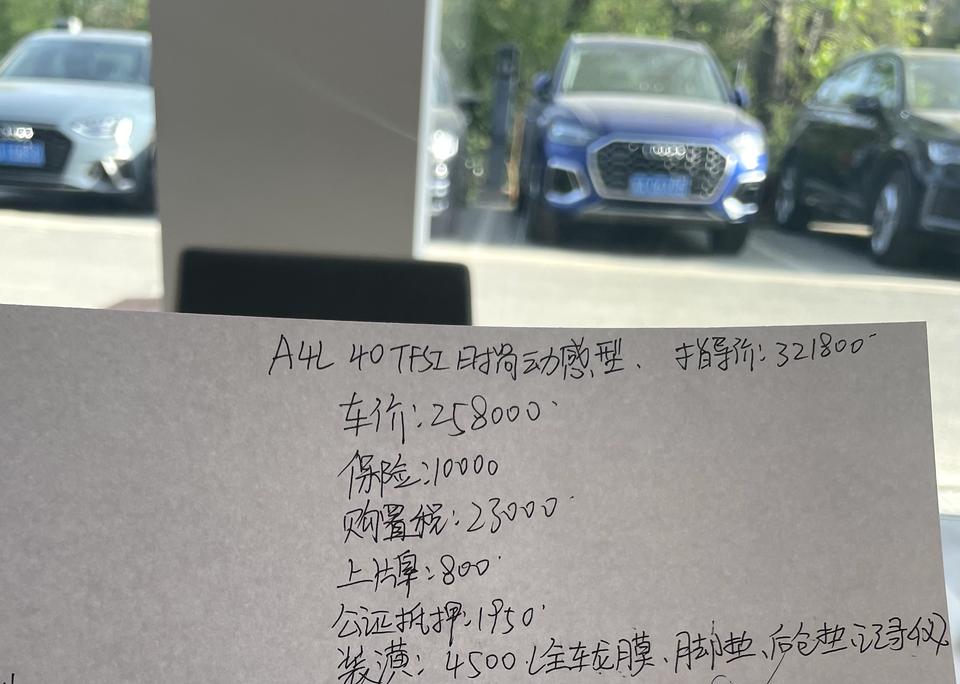 A4L 40 TFSI 时尚动感型、指导价:321800
车价:258000
保险:10000
购置税:23000
上牌:800
公证抵押:1950
装潢:4500(全车龙膜、脚垫、后仓垫、记录仪)